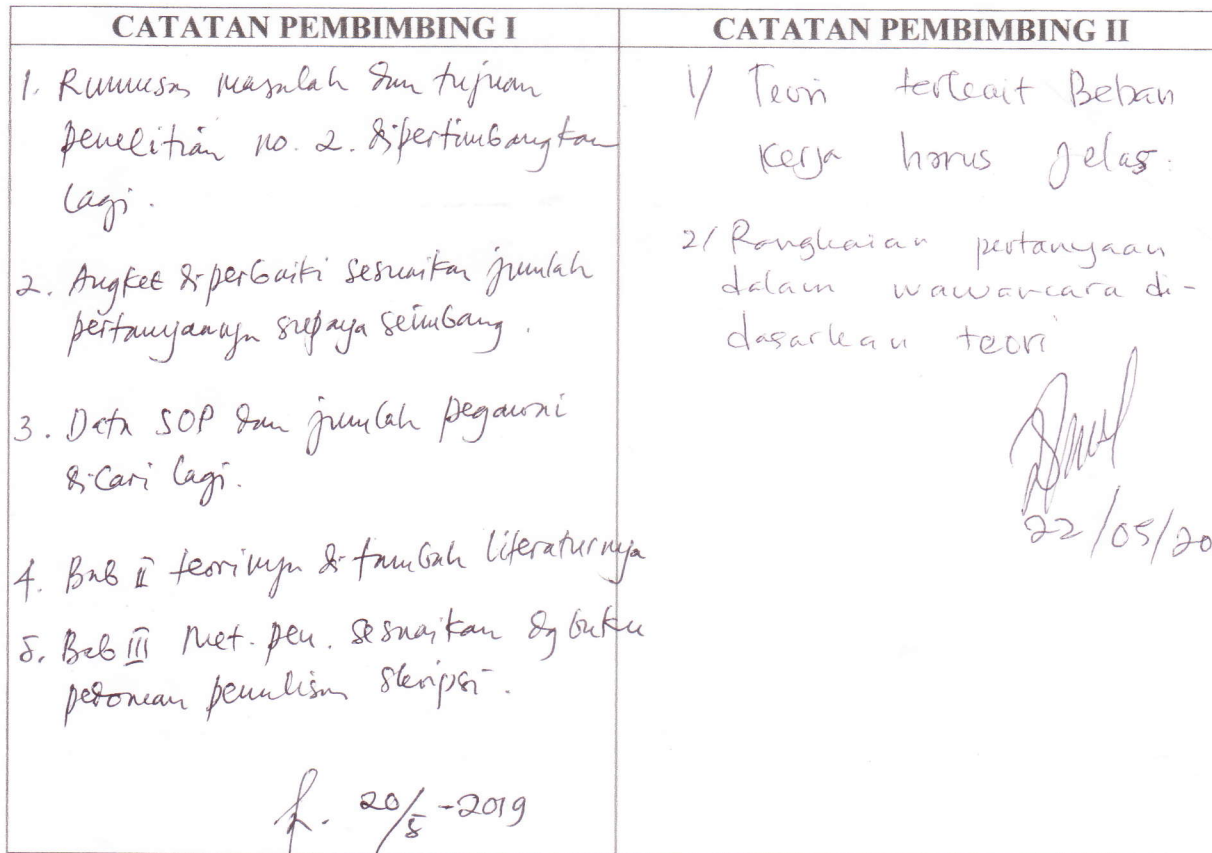 CATATAN PEMBIMBING I
1. Rumusan masalah dan tujuan
penelitian no. 2. dipertimbangkan
lagi.
2. Angket diperbaiki sesuaikan jumlah
pertanyaannya supaya seimbang.
3. Data SOP dan jumlah pegawai
dicari lagi.
4. Bab II teorinya ditambah literaturnya
5. Bab III Met. pen. sesuaikan dg buku
pedoman penulisan skripsi.
20/5-2019
CATATAN PEMBIMBING II
1/ Teori terkait Beban
kerja harus jelas.
2/ Rangkaian pertanyaan
dalam wawancara di-
dasarkan teori
22/05/20